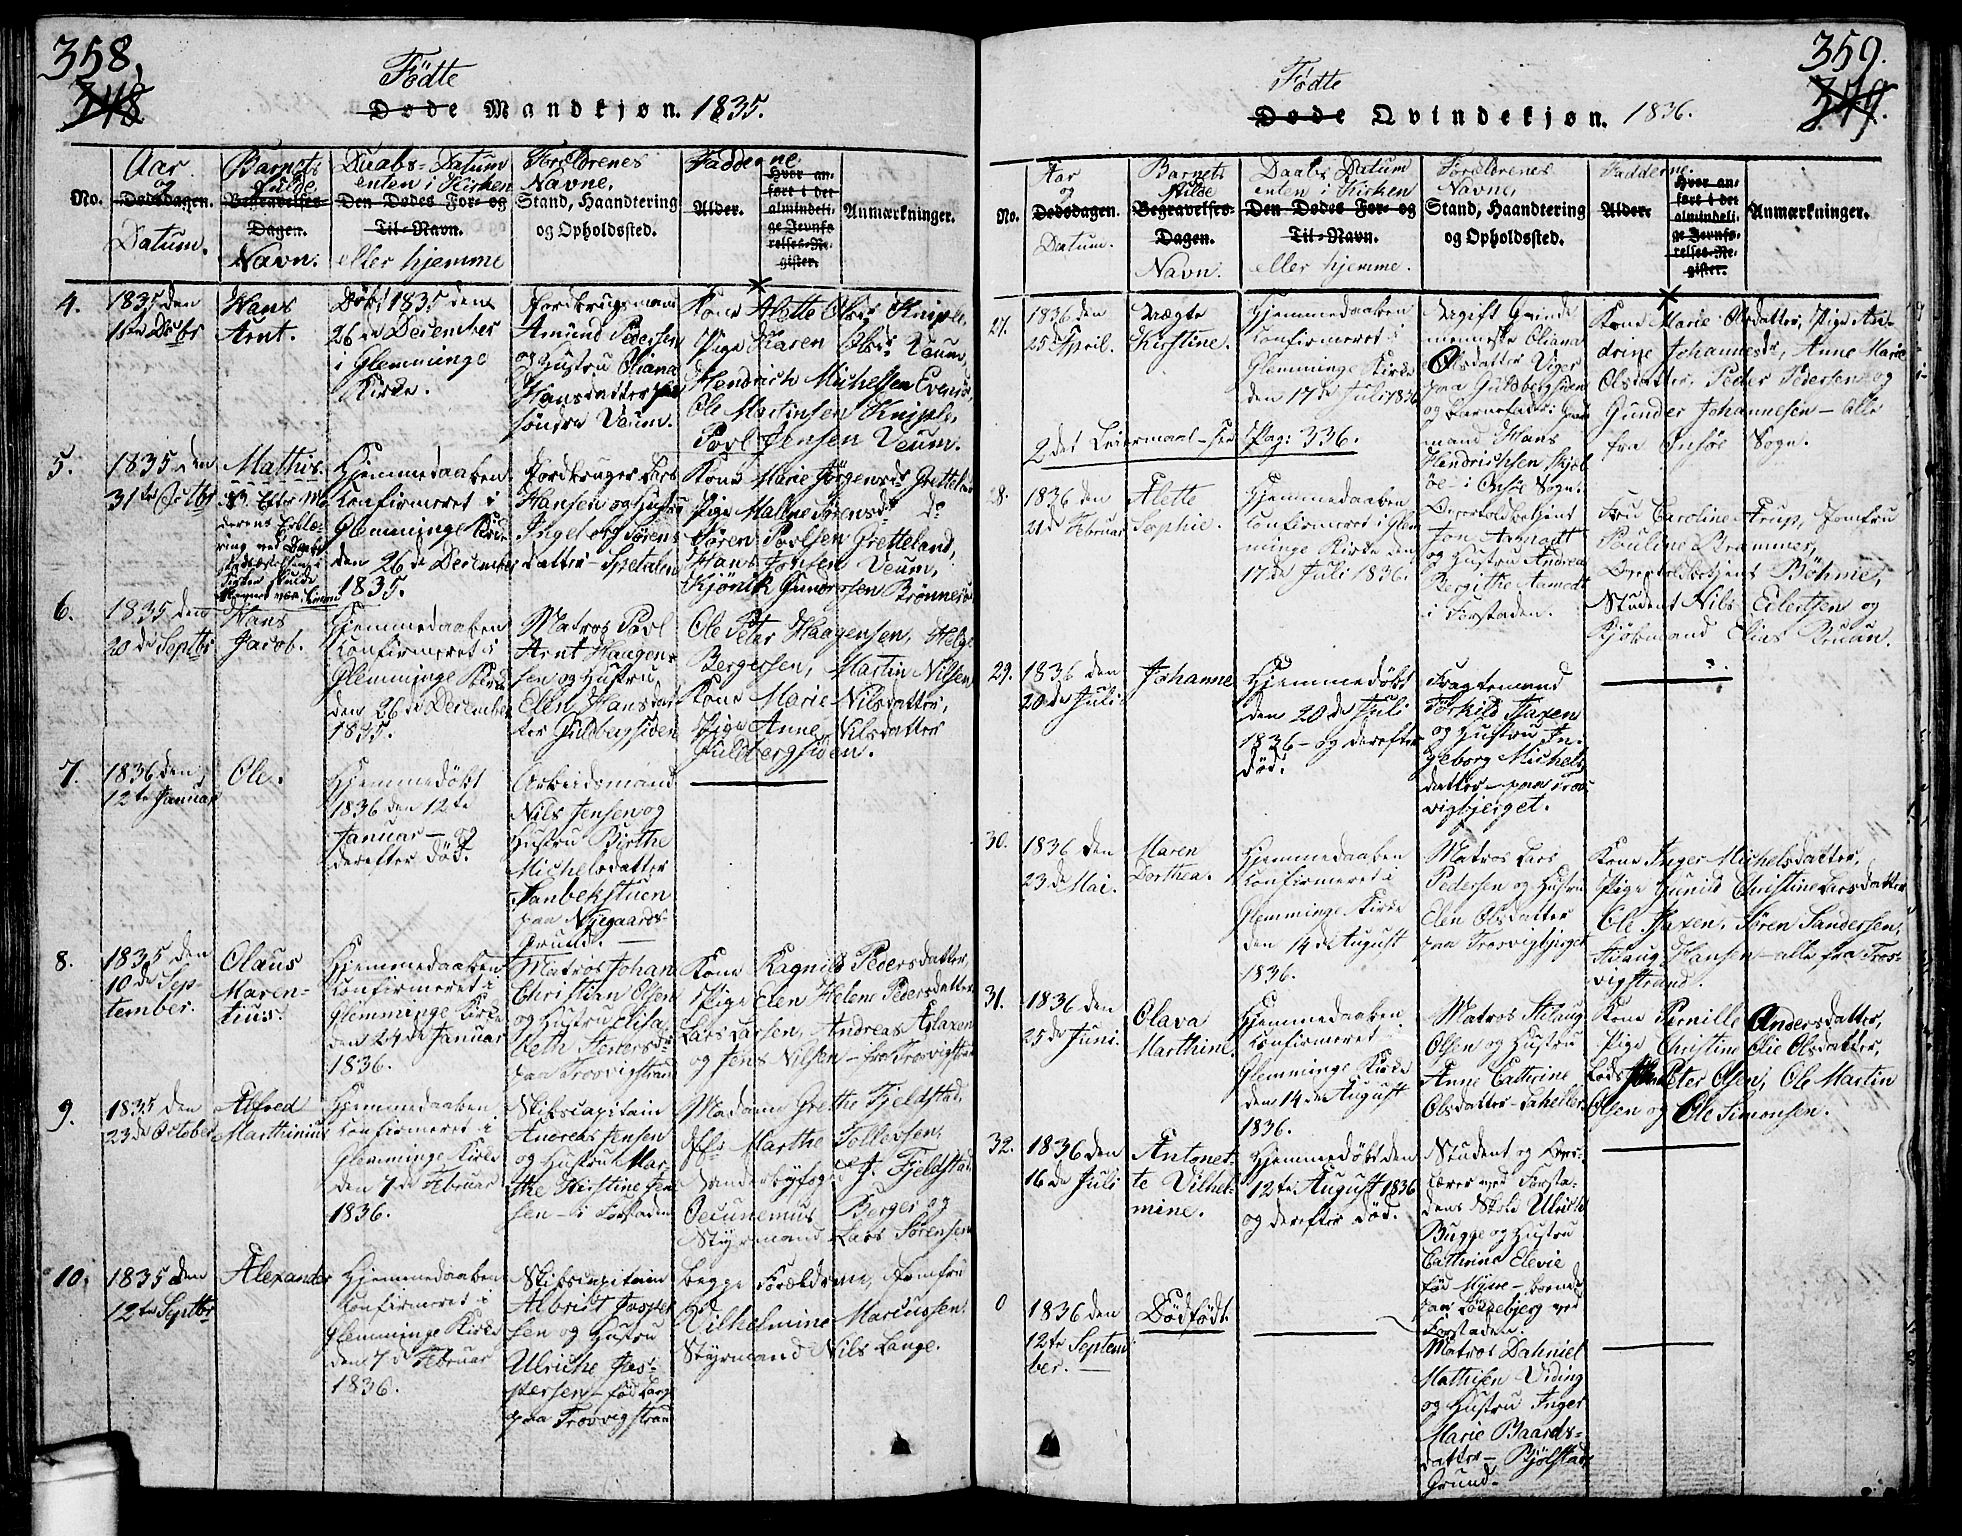 358.
348
Födte
Døde Mandkjøn. 1835.
No.
Aar og Dødsdagen. Datum.
Barnets fulde Begravelses-Dagen. Navn.
Daabs-Datum enten i Kirken Den Dødes For- og Til-Navn. eller hjemme
Forældrenes Navne, Stand, Haandtering og Opholdssted.
Fadderne Alder.
Hvor anført i det almindelige Jevnførelses-Register.
Anmærkninger.
4.
1835 den
18de Decbr
Hans
Arnt.
Döbt 1835 den
26de December
i Glemminge
Kirke.
Jordbrugsmand
Amund Pedersen
og Hustru Oliana
Hansdatter paa
söndre Veum.
Kone Alette Olsdr Kniple,
Pige Karen Olsdr Veum,
Hendrich Michelsen Evenrö,
Ole Martinsen Kniple,
Povl Jensen Veum.
5.
1835 den
31te Octbr
Mathis.
NB. Efter Mo
derens Erklæ
ring ved
Hjemmedaaben
Konfirmeret i
Glemminge Kirke
den 26de December
1835.
Jordbruger Lars
Hansen og Hustru
Ingeborg Sörens
datter - Spetalen
Kone Marie Jörgensdr Gretteland
Pige Malene Sörensdr do
Sören Povlsen Gretteland,
Hans Jonsen Veum,
Kjönik Gundersen Brönnerö
6.
1835 den
20de Septbr
Hans
Jacob.
Hjemmedaaben
Konfirmeret i
Glemminge Kirke
den 26de December
1835.
Matros Povl
Arnt Haagen-
sen og Hustru
Elen Hansdat
ter Guldbergsiden
Ole Peter Haagensen, Helge
Bergersen, Martin Nilsen,
Kone Marie Nilsdatter,
Pige Anne Nilsdatter
Guldbergsiden.
7.
1836 den
12te Januar
Ole.
Hjemmedöbt
1836 den 12te
Januar - og
derefter död.
Arbeidsmand
Nils Jensen og
Hustru Birthe
Michelsdatter
Sanbekstuen
paa Nygaards
Grund.
8.
1835 den
10de Sep-
tember.
Olaus
Maren-
tius.
Hjemmedaaben
Konfirmeret i
Glemminge Kirke
den 24de Januar
1836.
Matros Johan
Christian Olsen
og Hustru Elisa
beth Sewersdr
paa Trosvigstrand
Kone Ragnild Pedersdatter,
Pige Elen Helene Pedersdatter
Lars Larsen, Andreas Aslaxen
og Jens Nilsen - fra Trosvigstrand
9.
1835 den
23de October
Alfred
Marthinius
Hjemmedaaben
Konfirmeret i
Glemminge Kirke
den 7de Februar
1836.
Skibscapitain
Andreas Jensen
og Hustru Mar-
the Kirstine Jen
sen - i Forstaden
Madame Grethe Fjeldstad,
Jfr Marthe Tollevsen,
Sander byfoged J. Fjeldstad
Oecunemus Berger og
Styrmand Lars Sörensen
10.
1835 den
12te Septbr
Alexander
Hjemmedaaben
Konfirmeret i
Glemminge Kirke
den 7de Februar
1836.
Skibscapitain
Albrict Jasper
sen og Hustru
Ulriche Jas-
persen - föd Lange
paa Trosvigstrand
begge Forældrene, Jomfru
Vilhelmine Marcussen,
Styrmand Nils Lange.
359.
349.
Födte
Døde Qvindekjøn. 1836.
No.
Aar og Dødsdagen. Datum.
Barnets fulde Begravelses-Dagen. Navn.
Daabs Datum enten i Kirken Den Dødes For- og Til-Navn. eller hjemme.
Forældrenes Navne, Stand, Haandtering og Opholdssted.
Fadderne. Alder.
Hvor anført i det almindelige Jevnførelses-Register.
Anmærkninger.
27.
1836 den
25de April.
Uægte
Kirstine.
Hjemmedaaben
Konfirmeret i
Glemminge Kirke
den 17de Juli 1836
2det Leiermaal - see Pag: 336.
Ugift Qvinde
menneske Oliana
Olsdatter Viger
paa Guldbergsiden
og Barnefader: Gaard
mand Hans
Hendrichsen Kjöl
öe i Onsöe Sogn.
Kone Marie Olsdatter, Pige An-
drine Johannesdr, Anne Marie
Olsdatter, Peder Pedersen og
Gunder Johannesen - alle
fra Onsöe Sogn.
28.
1836 den
21de Februar
Alette
Sophie.
Hjemmedaaben
Konfirmeret i Glem
minge Kirke den
17de Juli 1836.
Overtoldbetjent
Jon Aamodt
og Hustru Andrea
Bergithe Aamodt
i Forstaden.
Fru Caroline Arup, Jomfru
Pauline Brammer,
Overtoldbetjent Böhme,
Student Nils Eilertsen og
Kjöbmand Elias Bruun.
29.
1836 den
20de Juli
Johanne
Hjemmedöbt
den 20de Juli
1836 - og derefter
död.
Fragtemand
Törkild Aaxen
og Hustru In-
geborg Michels
datter - paa Tros
vigbjerget.
30.
1836 den
23de Mai.
Maren
Dorthea.
Hjemmedaaben
Konfirmeret i
Glemminge Kirke
den 14de August
1836.
Matros Lars
Pedersen og Hustru
Elen Olsdatter
paa Trosvigbjerget
Kone Inger Michelsdatter,
Pige Gunild Christine Larsdatter
Ole Aaxen, Sören Sandersen,
Aslaug Hansen - alle fra Tros-
vigstrand.
31.
1836 den
25de Juni.
Olava
Marthine.
Hjemmedaaben
Konfirmeret i
Glemminge Kirke
den 14de August
1836.
Matros Aslaug
Olsen og Hustru
Anne Cathrine
Olsdatter - Lahelle
Kone Pernille Andersdatter,
Pige Christine Olie Olsdatter,
Lods Peter Olsen, Ole Martin
Olsen og Ole Simonsen.
32.
1836 den
16de Juli
Antonet-
te Vilhel-
mine.
Hjemmedöbt den
12te August 1836
og derefter död.
Student og Lær-
lærer ved Forsta-
dens Skole Ulrich
Bugge og Hustru
Cathrine Elevie
föd Mysse - boende
paa Lökkebjerg ved
Forstaden.
0
1836 den
12te Septem
ber.
Dödfödt.
Matros Dahniel
Mathisen Viding
og Hustru Inger
Marie Baards-
datter - Bjölstad
Grund.